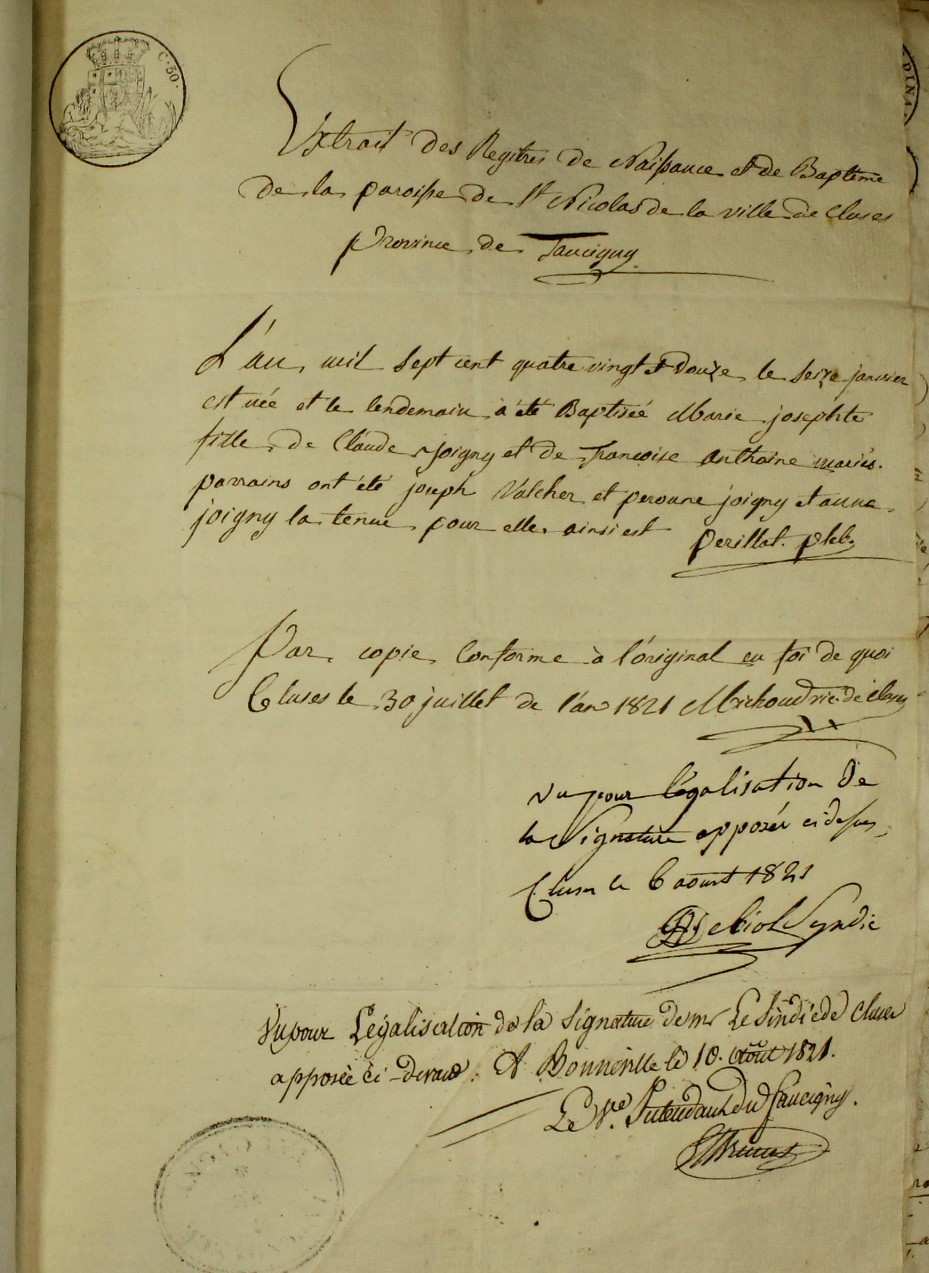 C. 50.
Extrait des Registres de Naissance et de Baptême
de la paroisse de St Nicolas de la ville de Cluses
Province de Faucigny.
L'an mil sept cent quatre vingt et douze le seize janvier
est née et le lendemain à été Baptiseé Marie josephte
fille de Claude joigny et de françoise anthoine mariés.
parrains ont été joseph Valcher et peronne joigny et anna
joigny la tenue pour elle ainsi est perillat. pleb.
Par copie Conforme à l'original en foi de quoi
Cluses le 30 juillet de l'an 1821 Michoud vic. de Cluses
Vu pour légalisation de
la Signature apposée ci dessus,
Cluses le 6 aoust 1821
Syndic
Vu pour Légalisation de la signature de mr Le Sindic de Cluses
apposée ci-devant. A Bonneville le 10. Aout 1821.
Le Vce Intendant du faucigny.